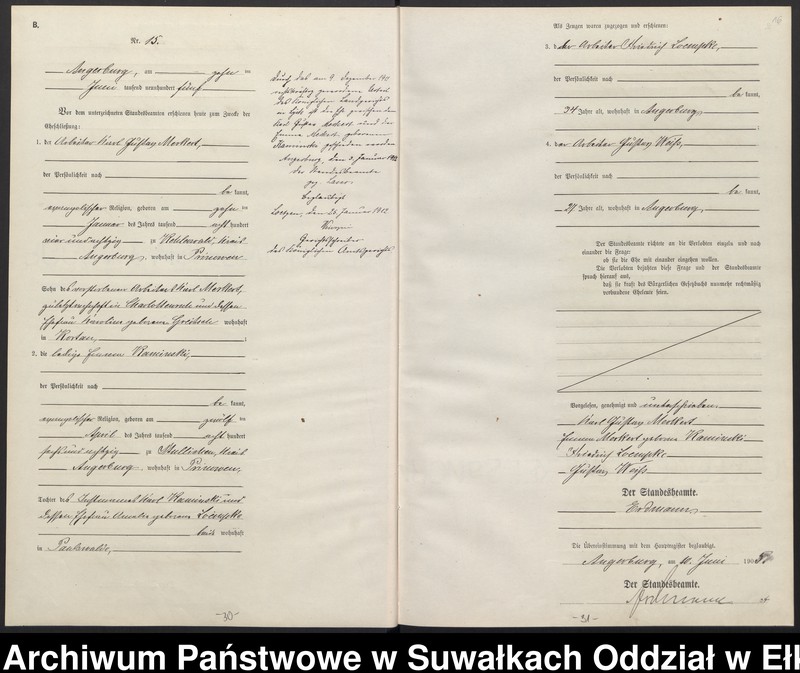 B.
Nr. 15.
Angerburg, am zehn ten
Juni tausend neunhundert fünf
Vor dem unterzeichneten Standesbeamten erschienen heute zum Zwecke der
Eheschließung:
1. der Arbeiter Karl Gustav Markert,
der Persönlichkeit nach
be kannt,
evangelischer Religion, geboren am zehn ten
Januar des Jahres tausend acht hundert
vier und achtzig zu Kehlerwald, Kreis
Angerburg, wohnhaft in Prinowen
Sohn des verstorbenen Arbeiters Karl Markert,
zuletzt wohnhaft in und dessen
Ehefrau Karoline geborene wohnhaft
in
2. die ledige Emma Kaminski,
der Persönlichkeit nach
be kannt,
evangelischer Religion, geboren am zwölf ten
April des Jahres tausend acht hundert
sechs und achtzig zu Kreis
Angerburg, wohnhaft in Prinowen,
Tochter des Instmannes Karl Kaminski und
dessen Ehefrau Amalie geborene Loczupko
beide wohnhaft
in Paulswalde,
-30-
Durch das am 9. Dezember
rechtskräftig gewordene Urteil
des Königlichen Landgerichts
in Lyck ist die Ehe zwischen dem
Karl Gustav Markert und der
Emma Markert geborenen
Kaminski geschieden worden
Angerburg, den 3. Januar 1912
Der Standesbeamte
gez.
Beglaubigt
Loetzen, den 23. Januar 1912
Gerichtsschreiber
des Königlichen Amtsgerichts
Als Zeugen waren zugezogen und erschienen:
3. der Arbeiter Friedrich Loczupko,
der Persönlichkeit nach
be kannt,
34 Jahre alt, wohnhaft in Angerburg
4. der Arbeiter Gustav Weiß,
der Persönlichkeit nach
be kannt,
24 Jahre alt, wohnhaft in Angerburg,
Der Standesbeamte richtete an die Verlobten einzeln und nach
einander die Frage:
ob sie die Ehe mit einander eingehen wollen.
Die Verlobten bejahten diese Frage und der Standesbeamte
sprach hierauf aus,
daß sie kraft des Bürgerlichen Gesetzbuchs nunmehr rechtmäßig
verbundene Eheleute seien.
Vorgelesen, genehmigt und unterschrieben
Karl Gustav Markert
Emma Markert geborene Kaminski
Friedrich Loczupko
Gustav Weiß
Der Standesbeamte.
Erdmann
Die Übereinstimmung mit dem Hauptregister beglaubigt.
Angerburg, am 10. Juni 1905
Der Standesbeamte.
Erdmann
-31-
Archiwum Państwowe w Suwałkach Oddział w Ełk